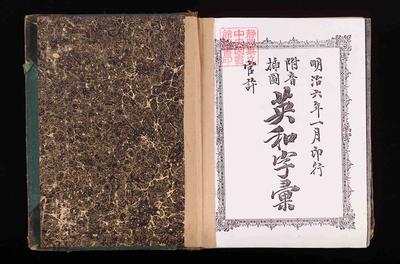 明治六年一月印行
附音
插圖
英和字彙
官許